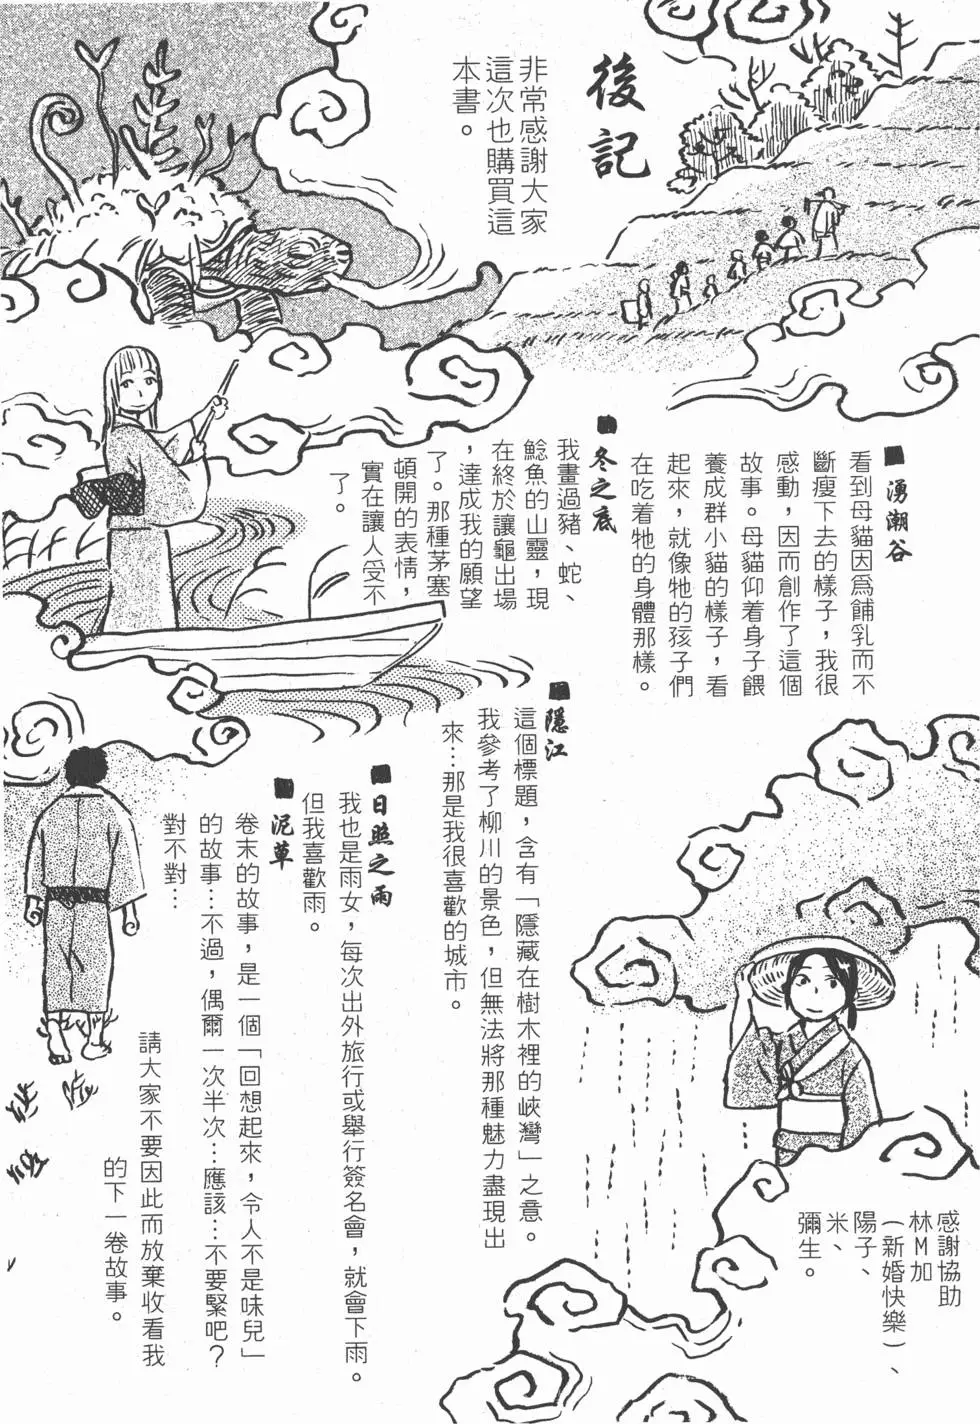 後記
非常感謝大家
這次也購買這
本書。
■湧潮谷
看到母貓因爲餔乳而不
斷瘦下去的樣子，我很
感動，因而創作了這個
故事。母貓仰着身子餵
養成群小貓的樣子，看
起來，就像牠的孩子們
在吃着牠的身體那樣。
■冬之底
我畫過豬、蛇、
鯰魚的山靈，現
在終於讓龜出場
，達成我的願望
了。那種茅塞
頓開的表情，
實在讓人受不
了。
■隱江
這個標題，含有「隱藏在樹木裡的峽灣」之意。
我參考了柳川的景色，但無法將那種魅力盡現出
來…那是我很喜歡的城市。
■日照之雨
我也是雨女，每次出外旅行或舉行簽名會，就會下雨。
但我喜歡雨。
■泥草
卷末的故事，是一個「回想起來，令人不是味兒」
的故事…不過，偶爾一次半次…應該…不要緊吧？
對不對…
請大家不要因此而放棄收看我
的下一卷故事。
感謝協助
林M加
（新婚快樂）、
陽子、
米、
彌生。